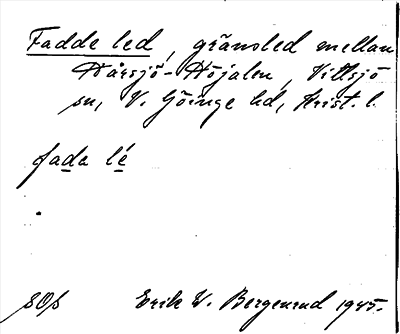 Fadde led, gränsled mellan
Hårsjö-Höjalen, Vittsjö
sn, V. Göinge hd, Krist. l.
fada lé
SOÞ Erik W. Bergenrud 1945.